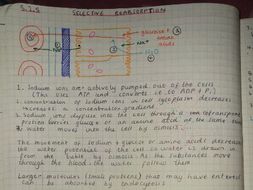 5.1.5 SELECTIVE REABSORPTION
glucose +
amino
acids
Na+
H2O
1. Sodium ions are actively pumped out of the cells
(This uses ATP and converts it to ADP + Pi)
2. concentration of sodium ions in cell cytoplasm decreases
increases a concentration gradient
3. Sodium ions diffuse into the cell through a cotransporter
protein carries glucose or an amino acid at the same time
4. water moves into the cell by osmosis.
The movement of sodium + glucose or amino acid decreases
the water potential of the cell so water is drawn in
from the tubule by osmosis. As the substances move
through the blood the water follows them
Larger molecules (small proteins) that may have entered
can be absorbed by endocytosis